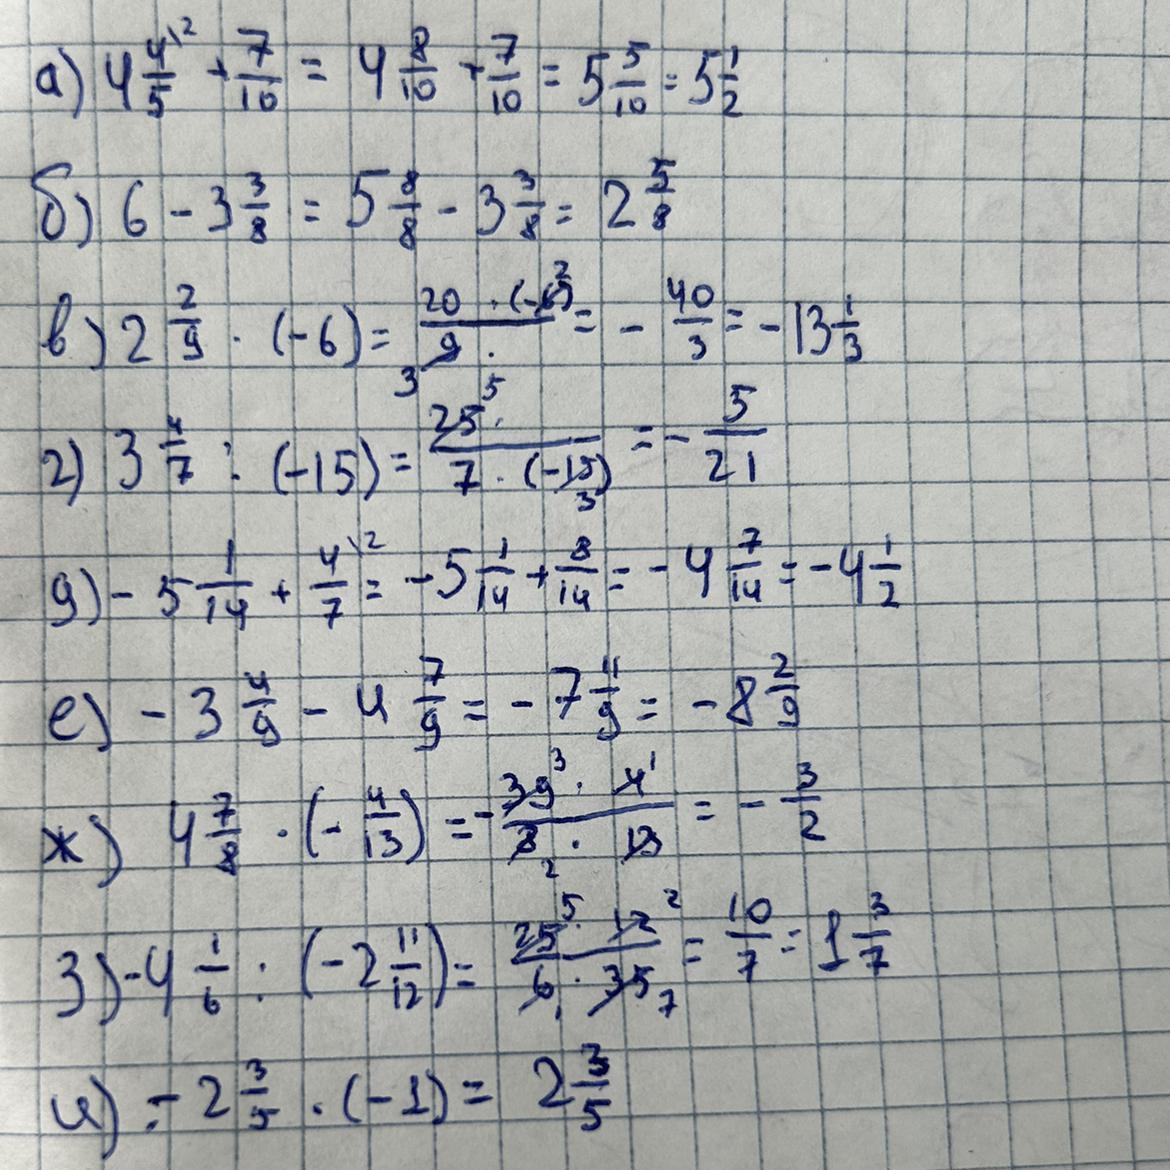 а) 4 4/5 \2 + 7/10 = 4 8/10 + 7/10 = 5 5/10 = 5 1/2
б) 6 - 3 3/8 = 5 8/8 - 3 3/8 = 2 5/8
в) 2 2/9 · (-6) = 20 · (-6) 2 / 9 · 3 = - 40/3 = - 13 1/3
г) 3 4/7 : (-15) = 25 5 · / 7 · (-15) 3 = - 5/21
д) - 5 1/14 + 4/7 \2 = - 5 1/14 + 8/14 = - 4 7/14 = - 4 1/2
е) - 3 4/9 - 4 7/9 = - 7 11/9 = - 8 2/9
ж) 4 7/8 · (- 4/13) = - 39 3 · 4 1 / 8 2 · 13 = - 3/2
з) - 4 1/6 : (- 2 11/12) = 25 5 · 12 2 / 6 1 · 35 7 = 10/7 = 1 3/7
и) - 2 3/5 · (-1) = 2 3/5